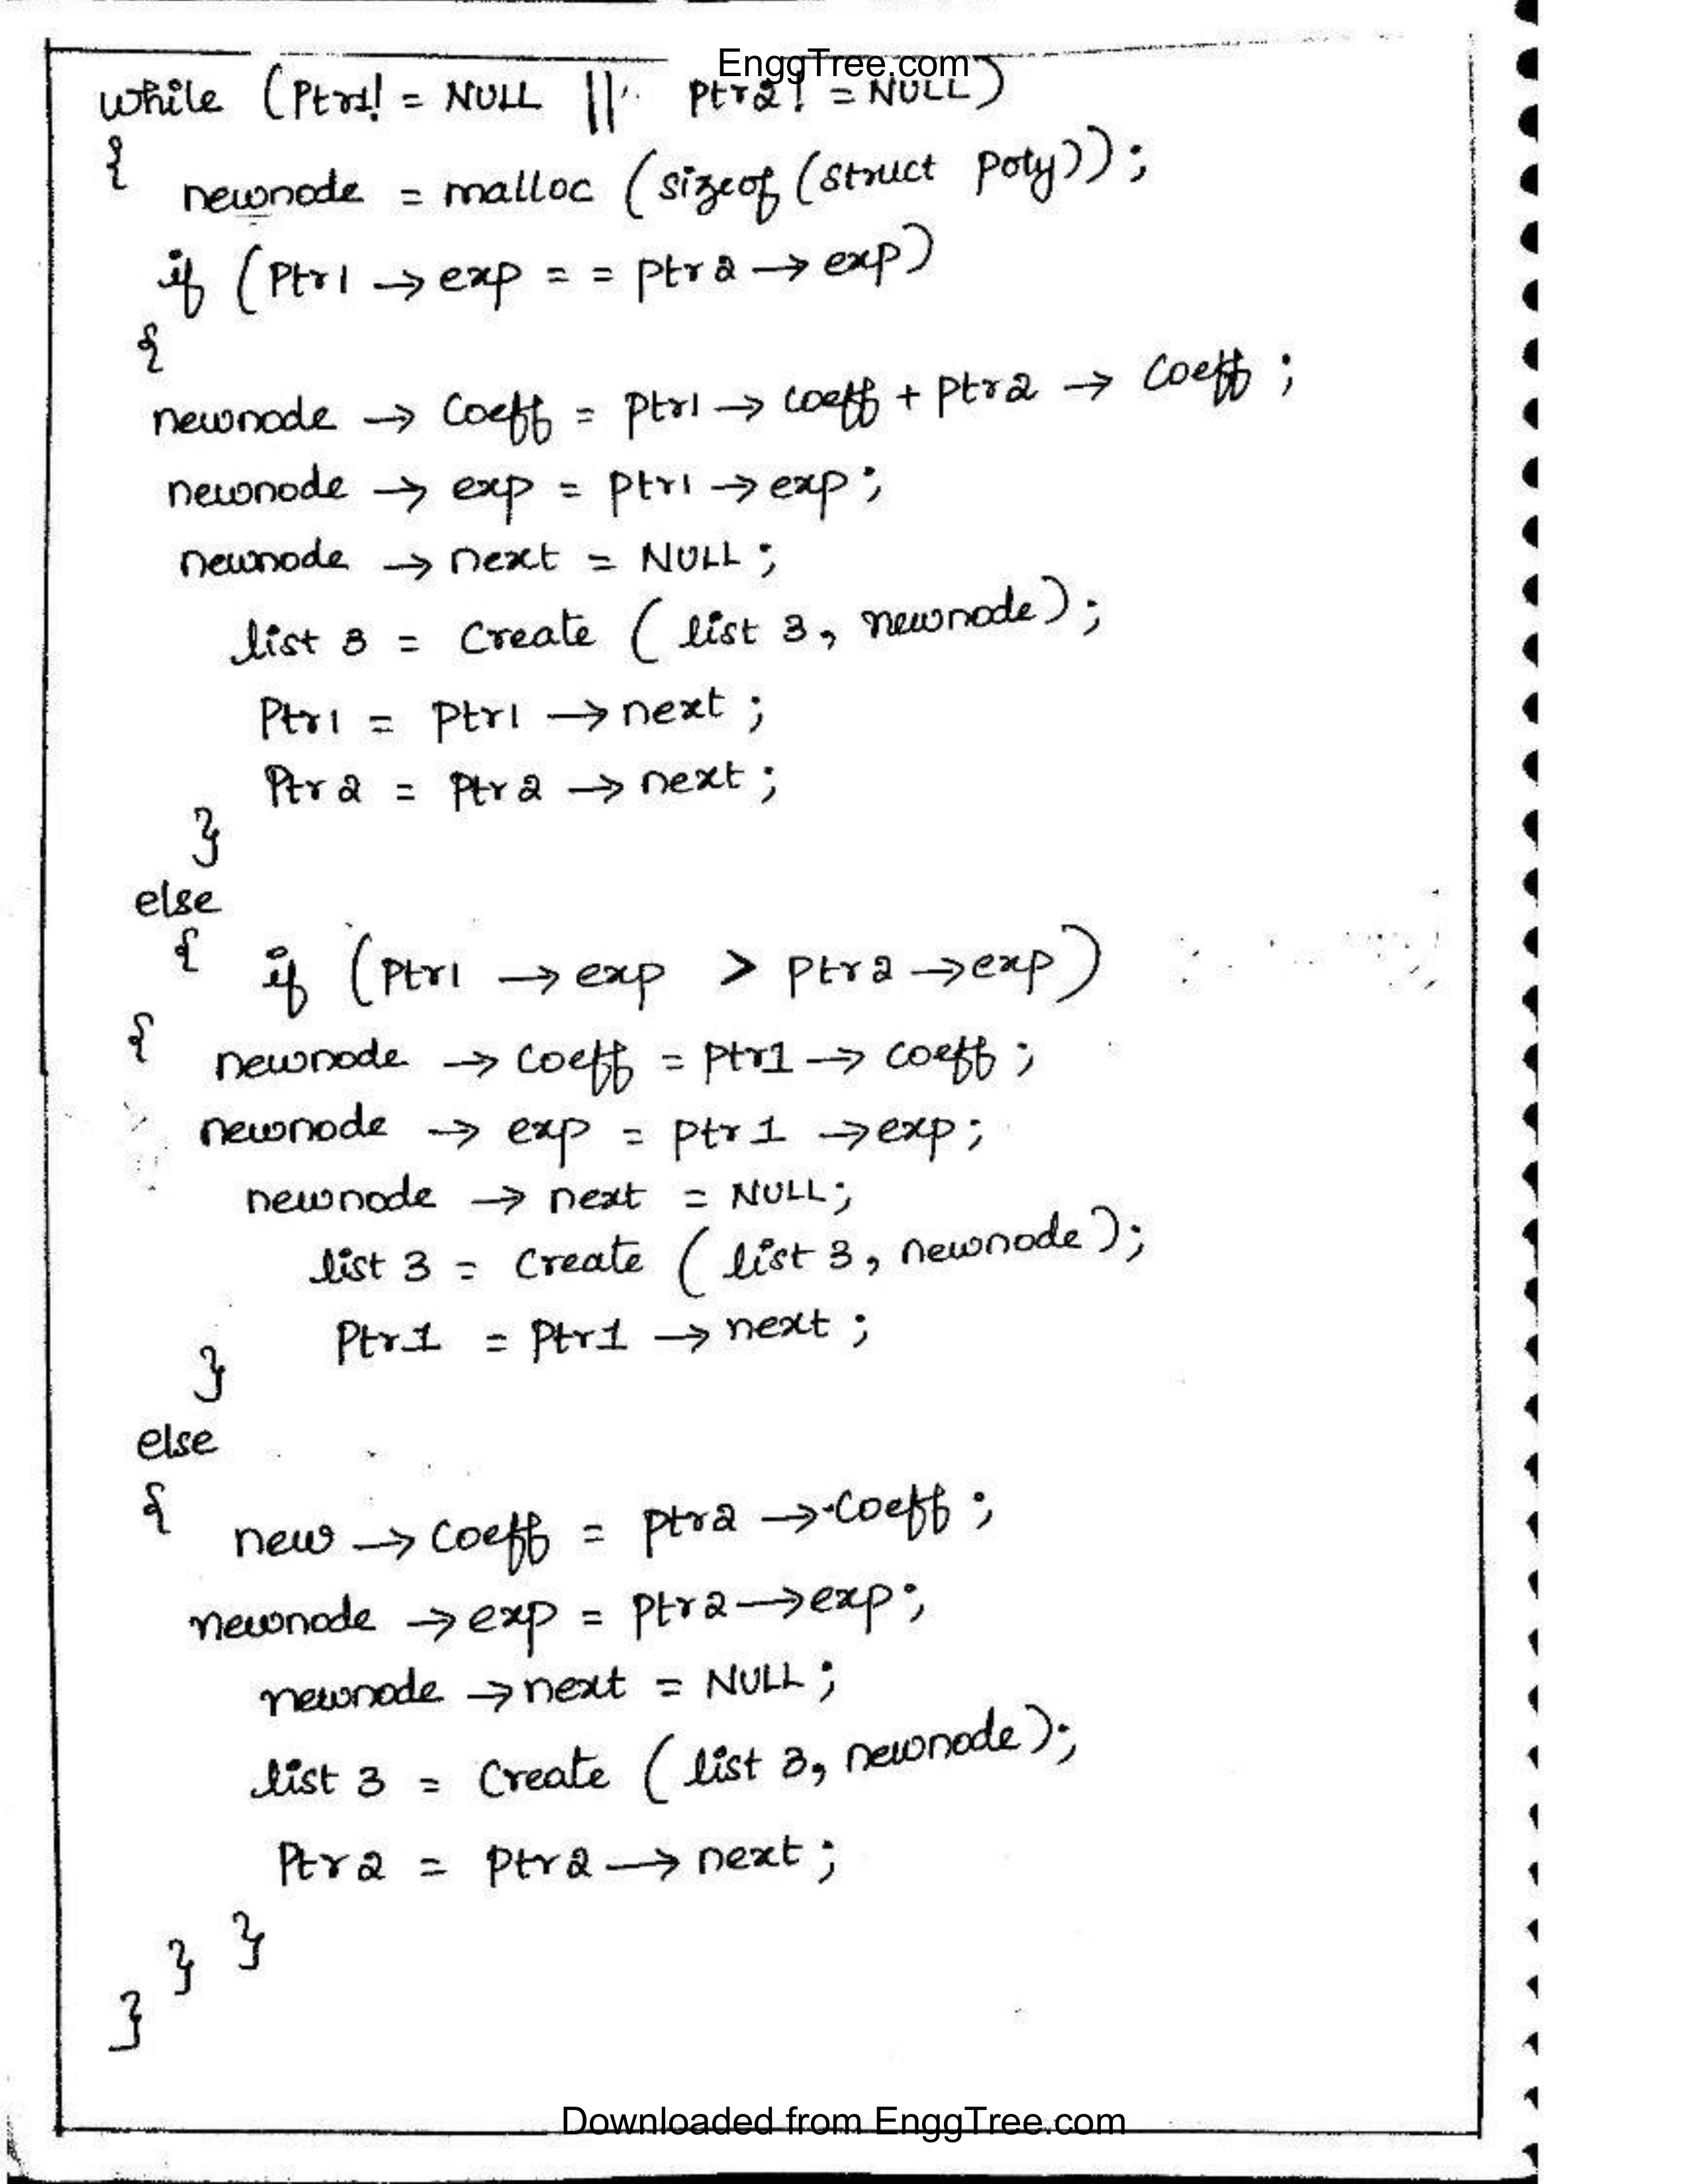 EnggTree.com
while (Ptr1! = NULL || Ptr2! = NULL)
{ newnode = malloc (sizeof (struct poly));
if (Ptr1 → exp = = ptr2 → exp)
{
newnode → Coeff = ptr1 → coeff + ptr2 → Coeff ;
newnode → exp = ptr1 → exp;
newnode → next = NULL;
list 3 = Create ( list 3, newnode);
Ptr1 = ptr1 → next ;
Ptr2 = Ptr2 → next ;
}
else
{ if (ptr1 → exp > ptr2 → exp)
{ newnode → Coeff = ptr1 → coeff ;
newnode → exp = ptr1 → exp;
newnode → next = NULL;
list 3 = Create ( list 3, newnode);
Ptr1 = Ptr1 → next ;
}
else
{ new → Coeff = ptr2 → Coeff ;
newnode → exp = ptr2 → exp;
newnode → next = NULL;
list 3 = Create ( list 3, newnode);
Ptr2 = ptr2 → next ;
} }
}
Downloaded from EnggTree.com